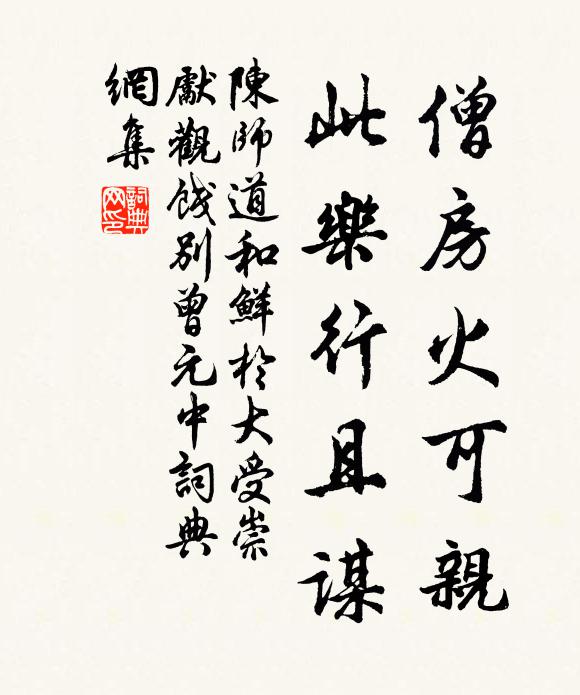 僧房火可親
此樂行且謀
陳師道和鮮於大受崇
獻觀餞別曾元中詞典
網集
詞典網印